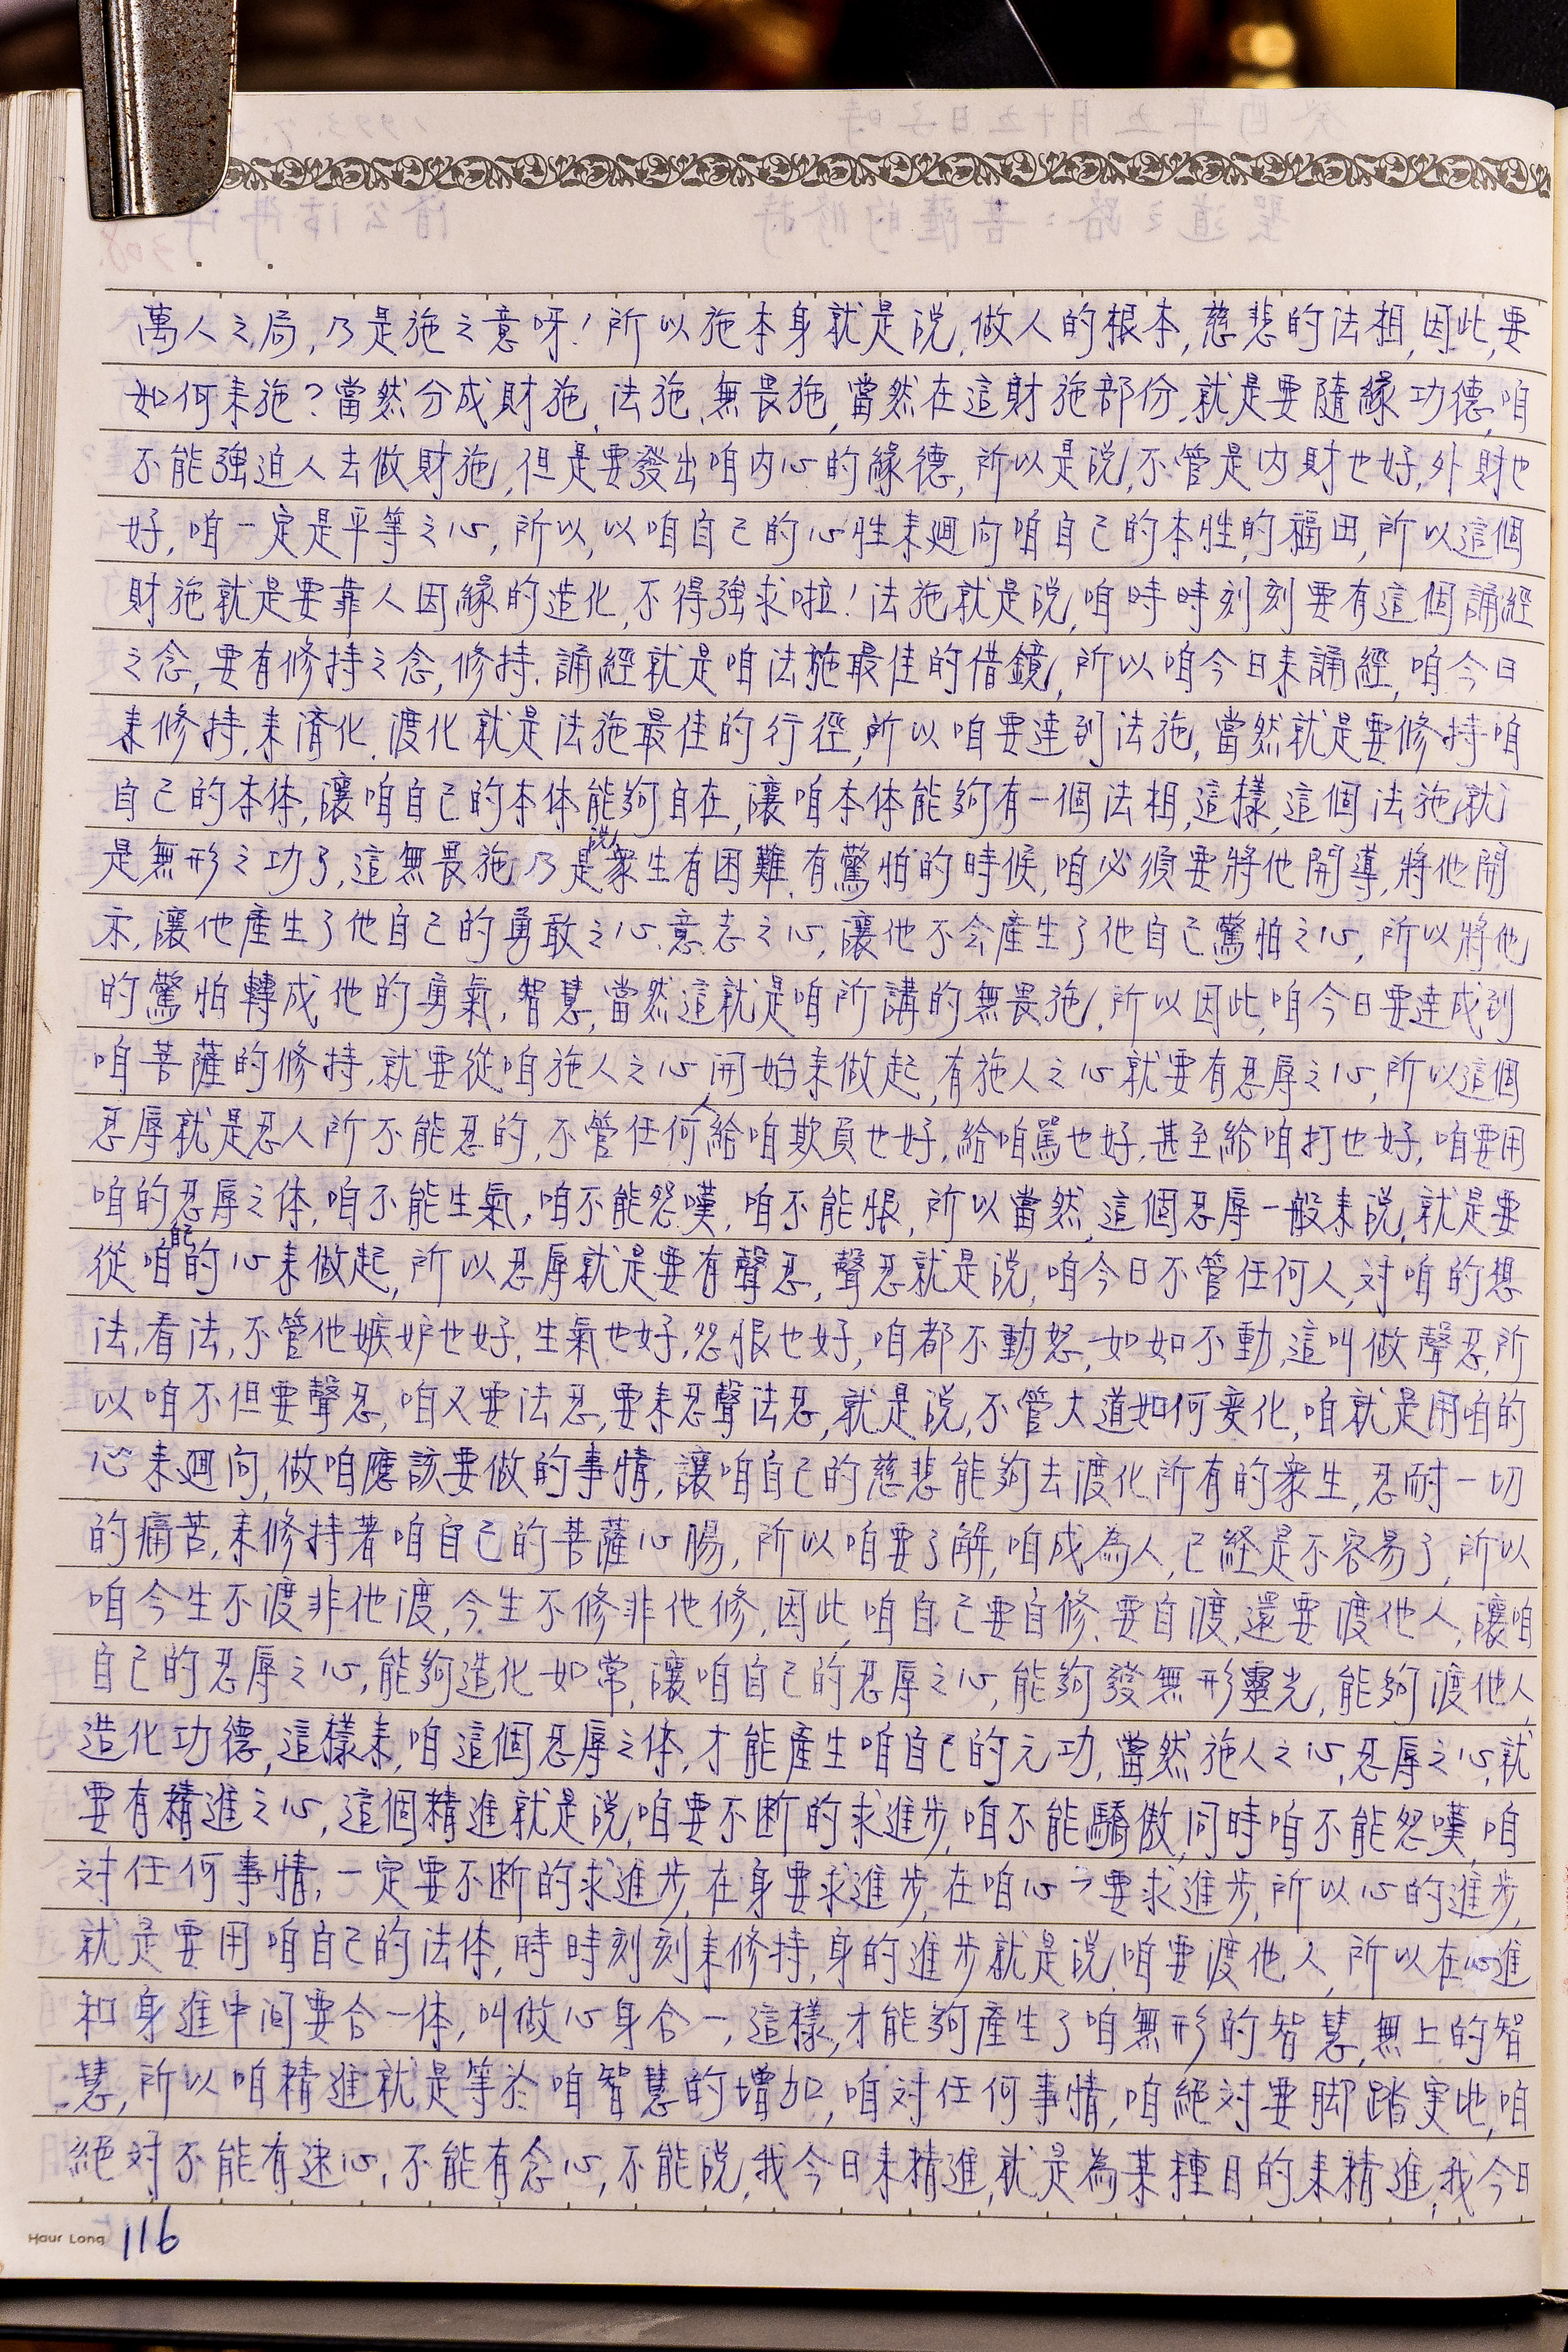 萬人之局,乃是施之意呀!所以施本身就是說,做人的根本,慈悲的法相,因此,要
如何來施?當然分成財施、法施、無畏施,當然在這財施部份,就是要隨緣功德,咱
不能強迫人去做財施,但是要發出咱內心的緣德,所以是說,不管是內財也好,外財也
好,咱一定是平等之心,所以,以咱自己的心性來迴向咱自己的本性的福田,所以這個
財施就是要靠人因緣的造化,不得強求啦!法施就是說,咱時時刻刻要有這個誦經
之念,要有修持之念,修持、誦經就是咱法施最佳的借鏡,所以咱今日來誦經,咱今日
來修持,來濟化、渡化就是法施最佳的行徑,所以咱要達到法施,當然就是要修持咱
自己的本体,讓咱自己的本体能夠自在,讓咱本体能夠有一個法相,這樣,這個法施就
是無形之功了,這無畏施乃是說眾生有困難、有驚怕的時候,咱必須要將他開導,將他開
示,讓他產生了他自己的勇敢之心、意志之心,讓他不会產生了他自己驚怕之心,所以將他
的驚怕轉成他的勇氣,智慧,當然這就是咱所講的無畏施,所以因此,咱今日要達成到
咱菩薩的修持,就要從咱施人之心開始來做起,有施人之心就要有忍辱之心,所以這個
忍辱就是忍人所不能忍的,不管任何人給咱欺負也好,給咱罵也好,甚至給咱打也好,咱要用
咱的忍辱之体,咱不能生氣,咱不能怨嘆,咱不能恨,所以當然,這個忍辱一般來說,就是要
從咱的心來做起,所以忍辱就是要有聲忍,聲忍就是說,咱今日不管任何人,対咱的想
法,看法,不管他嫉妒也好,生氣也好,怨恨也好,咱都不動怒,如如不動,這叫做聲忍,所
以咱不但要聲忍,咱又要法忍,要來忍聲法忍,就是說,不管大道如何変化,咱就是用咱的
心來迴向,做咱應該要做的事情,讓咱自己的慈悲能夠去渡化所有的眾生,忍耐一切
的痛苦,來修持著咱自己的菩薩心腸,所以咱要了解,咱成為人,已経是不容易了,所以
咱今生不渡非他渡,今生不修非他修,因此,咱自己要自修、要自渡,還要渡他人,讓咱
自己的忍辱之心,能夠造化如常,讓咱自己的忍辱之心,能夠發無形靈光,能夠渡他人,
造化功德,這樣來,咱這個忍辱之体,才能產生咱自己的元功,當然施人之心,忍辱之心,就
要有精進之心,這個精進就是說,咱要不断的求進步,咱不能驕傲,同時咱不能怨嘆,咱
対任何事情,一定要不断的求進步,在身要求進步,在咱心亦要求進步,所以心的進步,
就是要用咱自己的法体,時時刻刻來修持,身的進步就是說,咱要渡他人,所以在心進
和身進中间要合一体,叫做心身合一,這樣,才能夠產生了咱無形的智慧,無上的智
慧,所以咱精進就是等於咱智慧的增加,咱対任何事情,咱絕対要脚踏実地,咱
絕対不能有速心,不能有念心,不能說,我今日來精進,就是為某種目的來精進,我今日
Haur Long 116